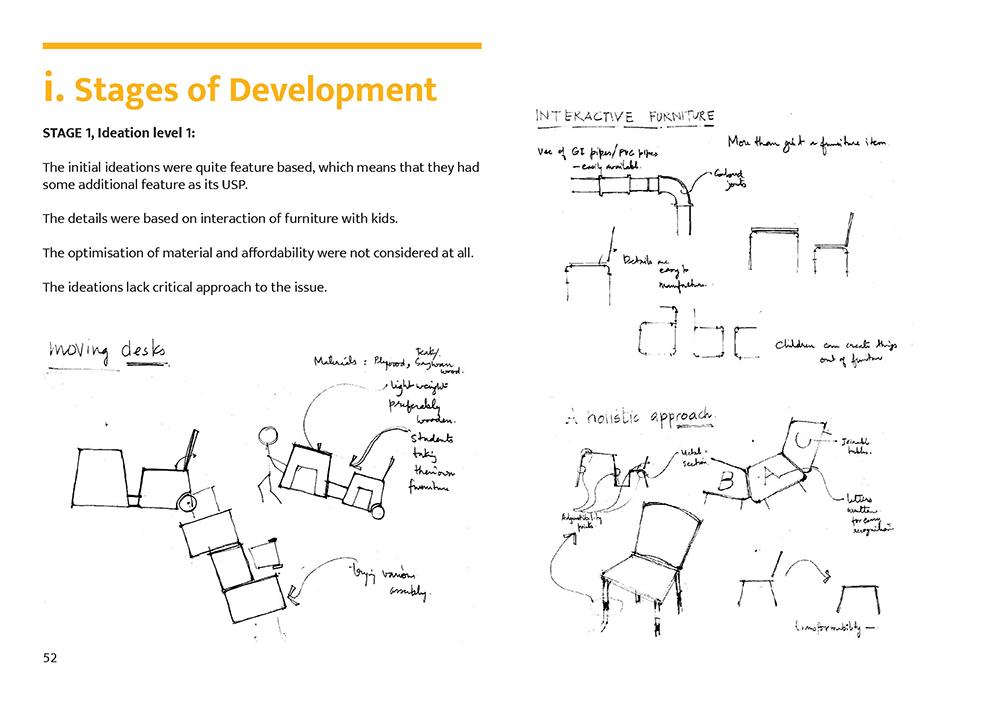 i. Stages of Development
STAGE 1, Ideation level 1:
The initial ideations were quite feature based, which means that they had
some additional feature as its USP.
The details were based on interaction of furniture with kids.
The optimisation of material and affordability were not considered at all.
The ideations lack critical approach to the issue.
moving desks
Materials : Plywood,
Teak/
wood.
light weight
preferably
wooden.
Students
taking
their own
furniture
trying various
assembly.
52
INTERACTIVE FURNITURE
More than just a furniture item
Use of GI pipes/PVC pipes
– easily available.
joints
Details are
easy to
manufacture.
a b c
Children can create things
out of furniture
A holistic approach.
Metal
section
Adjustability
points
B
A
C
tables.
letters
written
for easy
recognition
transformability —